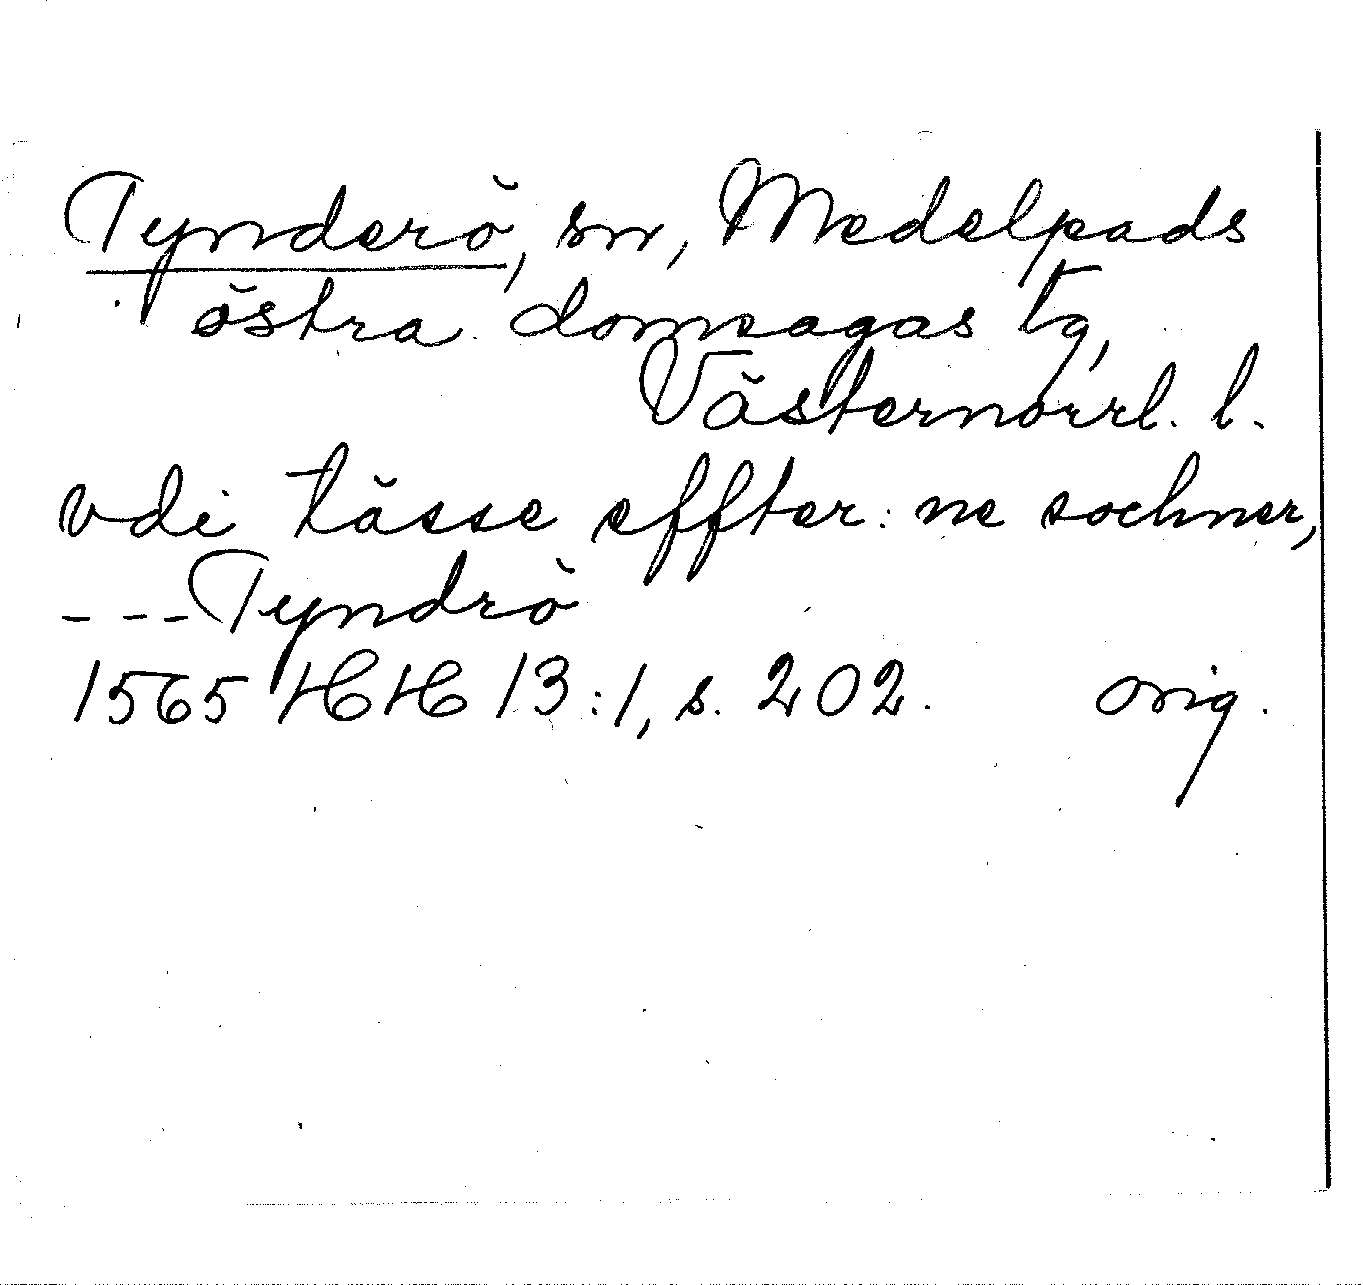 Tynderö, sn, Medelpads
östra domsagas tg,
Västernorrl. l.
vdi tässe effter: ne sochner,
---Tyndrö
1565 HH 13:1, s. 202. orig.